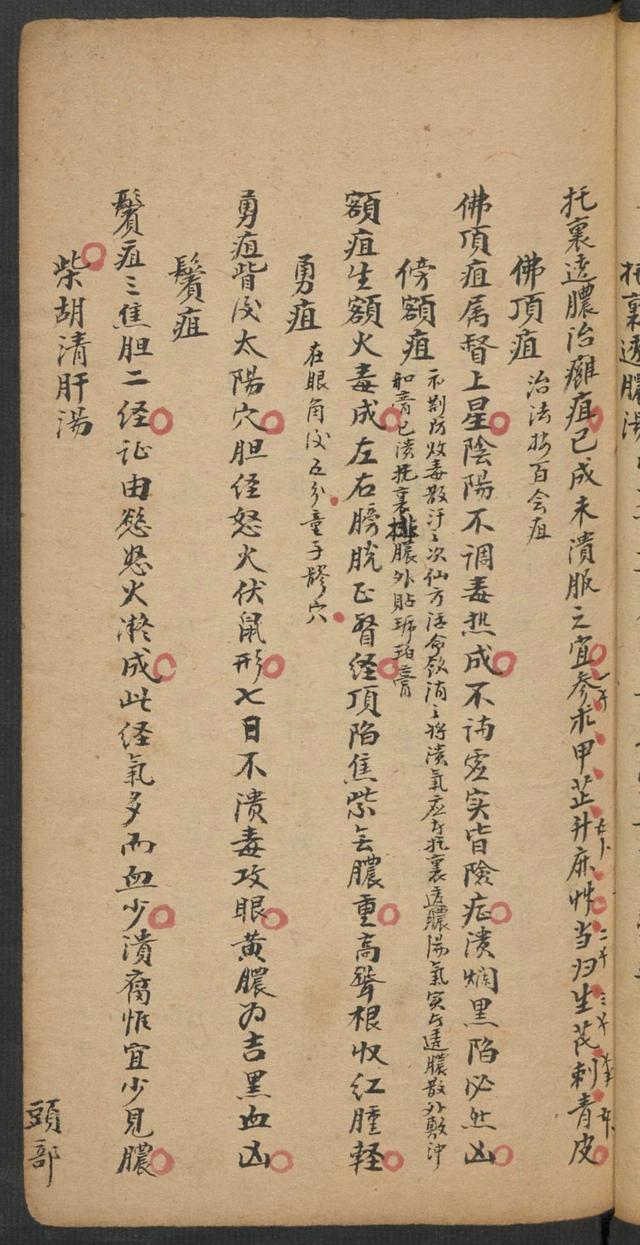 托裏透膿湯
托裏透膿治癰疽已成未潰服之宜參朮甲芷升麻草当归生芪刺青皮
佛頂疽 治法按百会疽
佛頂疽属督上星陰陽不调毒热成不论虚实皆險症潰烂黑陷必然凶
傍額疽 初荆防败毒散汗之次仙方活命飲消之将潰氣虚与托裏透膿湯氣实与透膿散外敷冲
和膏已潰托裏排膿外貼琥珀膏
額疽生額火毒成左右膀胱正督经頂陷焦紫無膿重高聳根收红腫軽
勇疽 在眼角後五分童子髎穴
勇疽眥後太陽穴胆经怒火伏鼠形七日不潰毒攻眼黄膿为吉黑血凶
鬢疽
鬢疽三焦胆二经证由慾怒火凝成此经氣多而血少潰腐惟宜少見膿
柴胡清肝湯
頭部